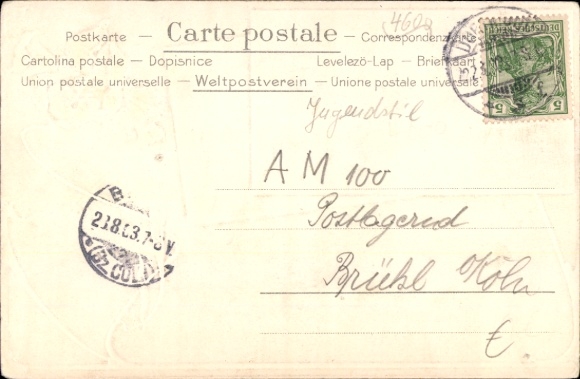 460a
Postkarte – Carte postale – Correspondenzkarte
Cartolina postale – Dopisnice Levelezö-Lap – Briefkaart
Union postale universelle – Weltpostverein – Unione postale universale
Jugendstil
A M 100
Postlagernd
Brühl Köln
5 5
23.8.03.7-8V.
(BZ. CÖLN)